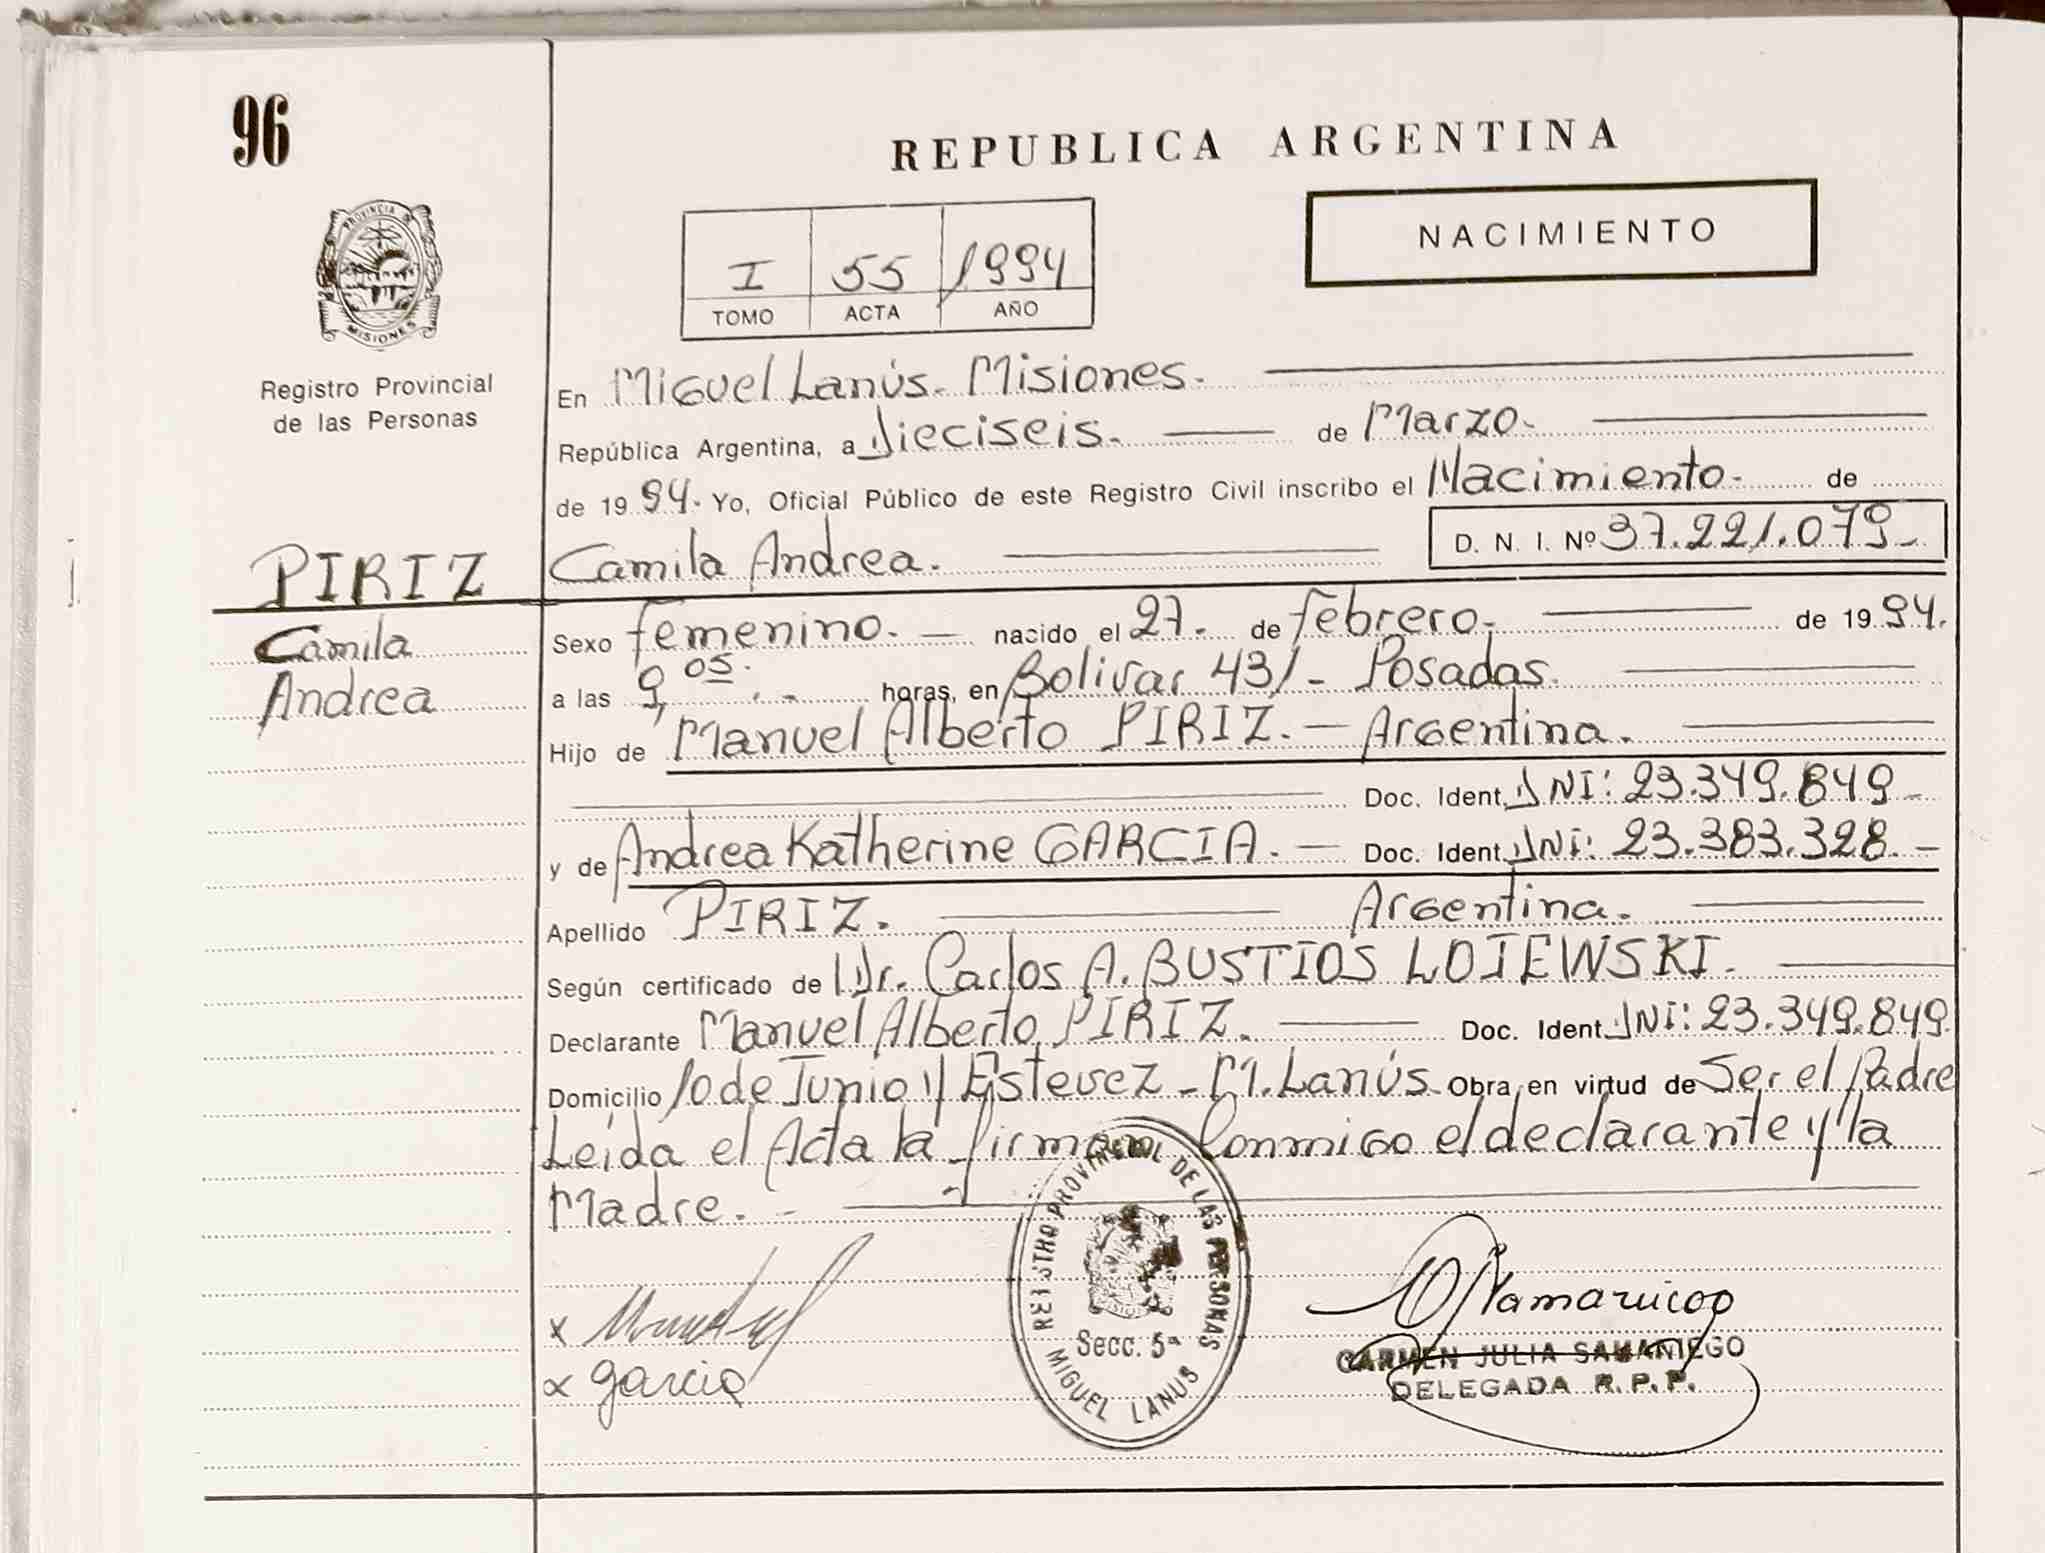 96
REPUBLICA ARGENTINA
NACIMIENTO
I 55 1994
TOMO ACTA AÑO
PROVINCIA DE
MISIONES
Registro Provincial
de las Personas
En Miguel Lanús. Misiones.
República Argentina, a Dieciseis. de Marzo.
de 1994. Yo, Oficial Público de este Registro Civil inscribo el Nacimiento. de
PIRIZ Camila Andrea. D. N. I. Nº 37.221.079
Camila
Andrea
Sexo femenino. nacido el 27. de febrero. de 1994.
a las 9,05. horas, en Bolivar 431 - Posadas.
Hijo de Manuel Alberto PIRIZ. - Argentina.
Doc. Ident. DNI: 23.349.849
y de Andrea Katherine GARCIA. - Doc. Ident. DNi: 23.383.328. -
Apellido PIRIZ. Argentina.
Según certificado de Dr. Carlos A. BUSTIOS LOJEWSKI.
Declarante Manuel Alberto PIRIZ. Doc. Ident. DNi: 23.349.849
Domicilio 10 de Junio y Estevez - M. Lanús. Obra en virtud de Ser el Padre
Leída el Acta la firman Conmigo el declarante y la
Madre.
REGISTRO PROVINCIAL DE LAS PERSONAS
Secc. 5ª
MIGUEL LANUS
x
x Garcia
CARMEN JULIA SAMANIEGO
DELEGADA R.P.P.